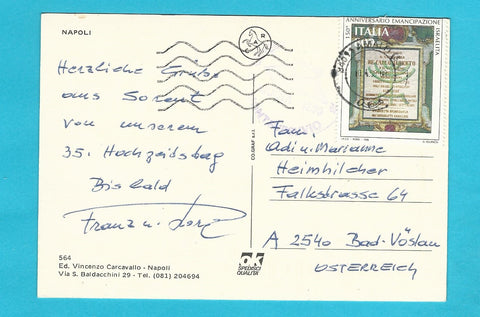 NAPOLI
Herzliche Grüße
aus Sorent
von unserem
35. Hochzeitstag
Bis bald
Franz u.
564
Ed. Vincenzo Carcavallo - Napoli
Via S. Baldacchini 29 - Tel. (081) 204694
CO.GRAF s.r.l.
OK
SPEDIRCI
QUALITÀ
150° ANNIVERSARIO EMANCIPAZIONE ISRAELITA
ITALIA
RE CARLO ALBERTO
Fam.
Adi u. Marianne
Heimhilcher
Falkstrasse 64
A 2540 Bad-Vöslau
ÖSTERREICH